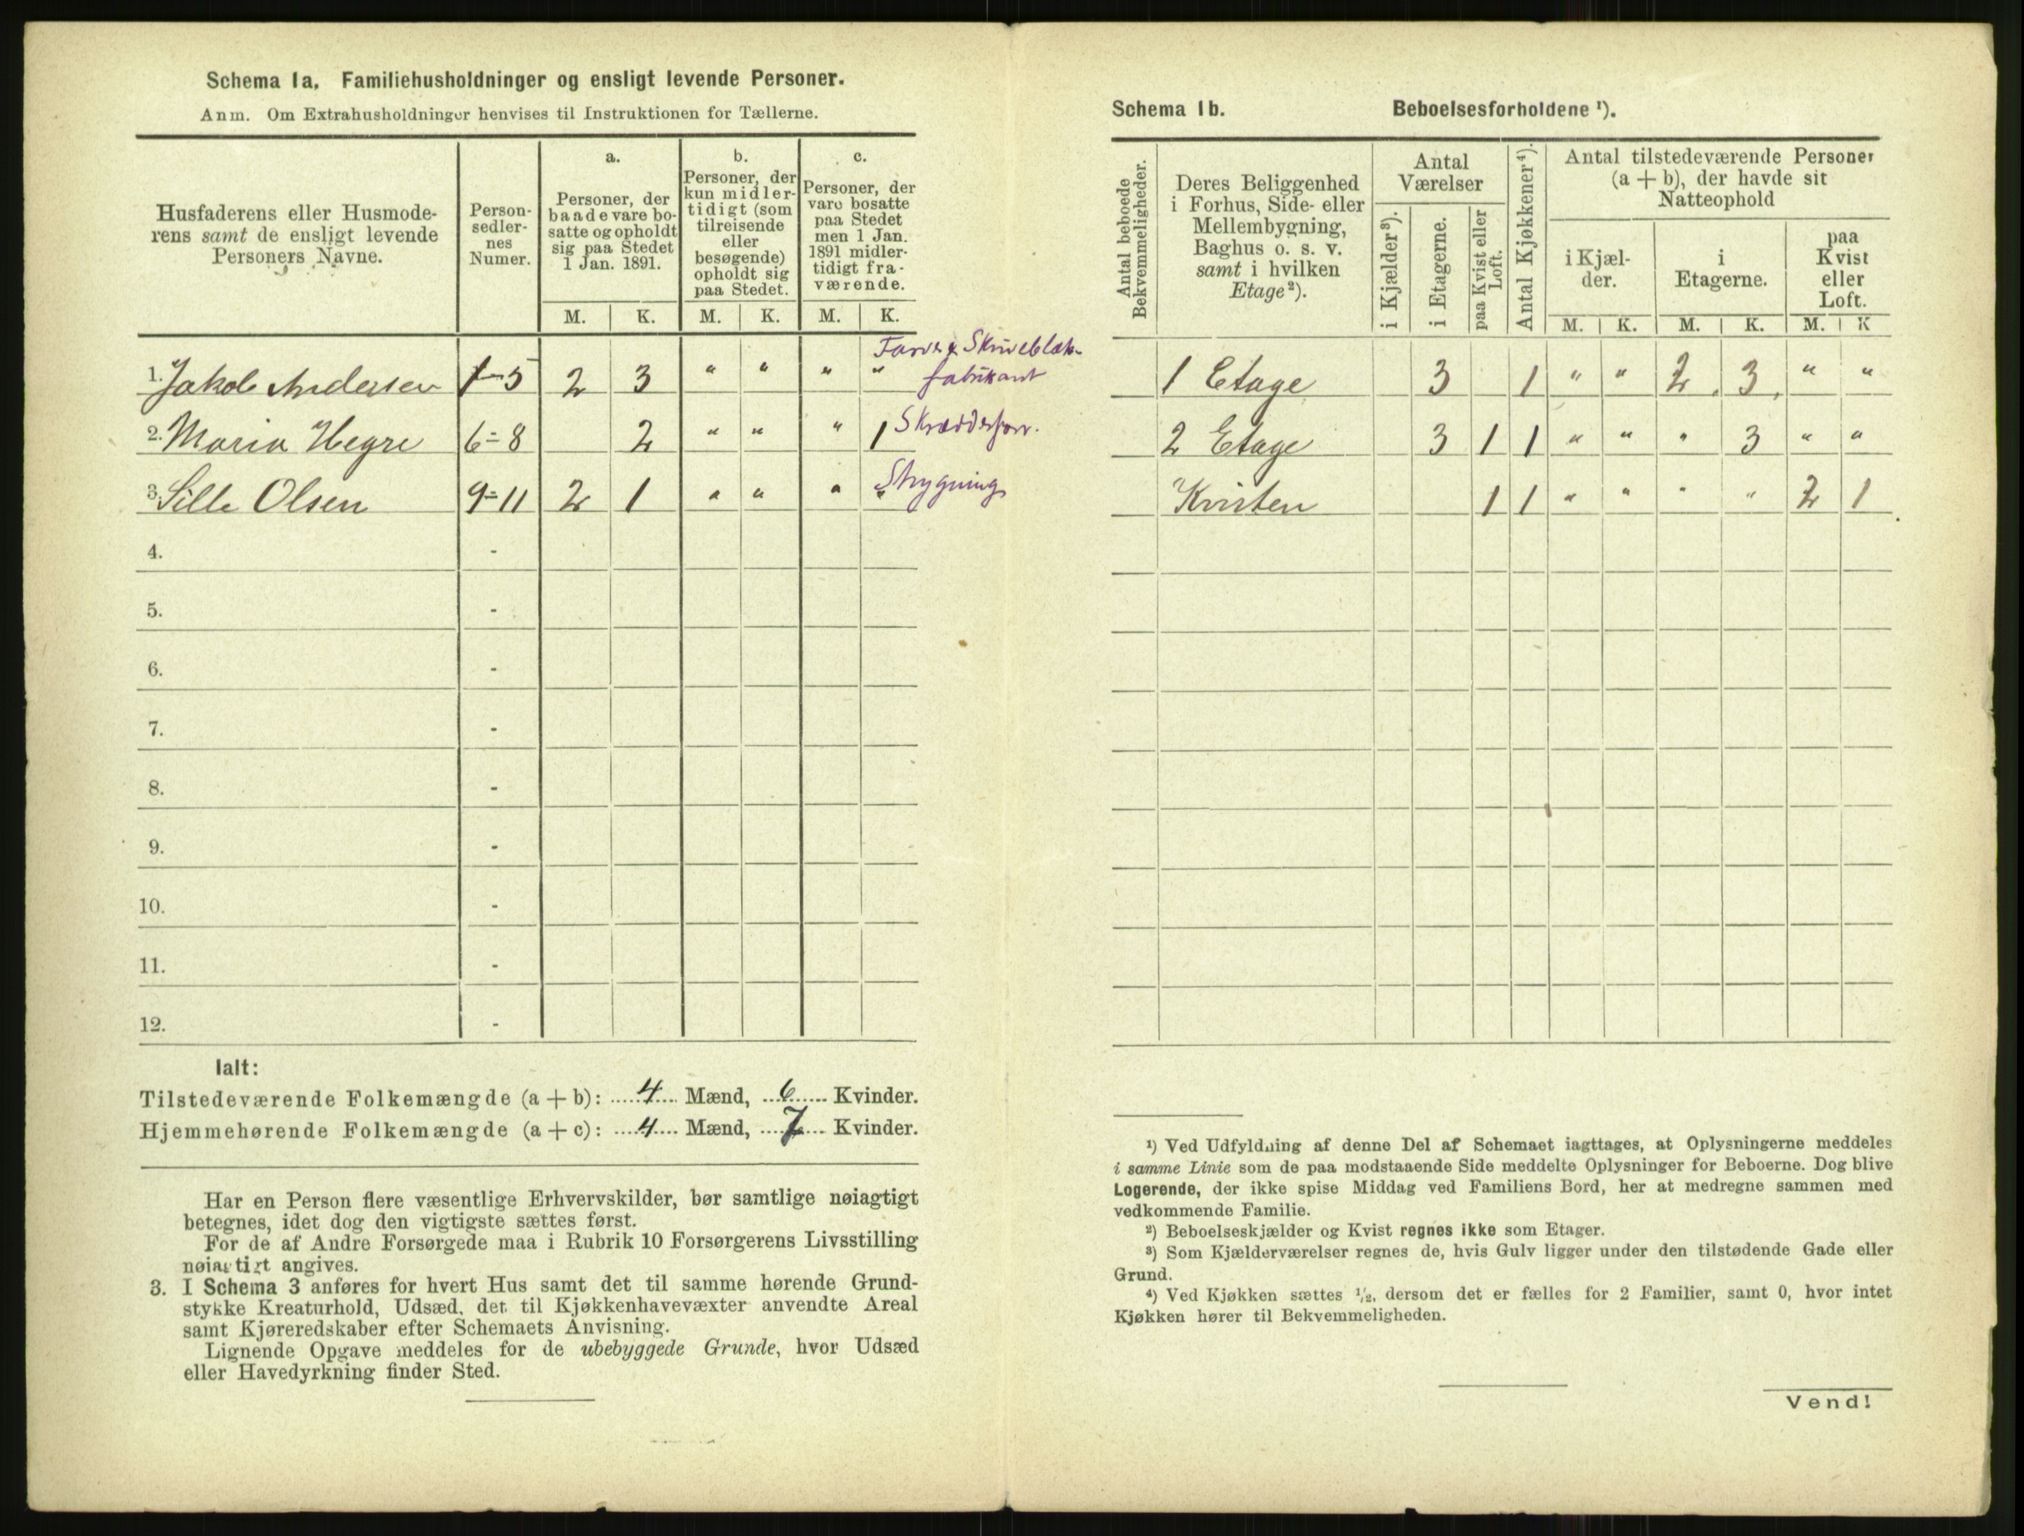 Schema 1a. Familiehusholdninger og ensligt levende Personer.
Anm. Om Extrahusholdninger henvises til Instruktionen for Tællerne.
Husfaderens eller Husmode-
rens samt de ensligt levende
Personers Navne.
Person-
sedler-
nes
Numer.
a.
Personer, der
baade vare bo-
satte og opholdt
sig paa Stedet
1 Jan. 1891.
b.
Personer, der
kun midler-
tidigt (som
tilreisende
eller
besøgende)
opholdt sig
paa Stedet.
c.
Personer, der
vare bosatte
paa Stedet
men 1 Jan.
1891 midler-
tidigt fra-
værende.
M. K. M. K. M. K.
1. Jakob Andersen 1-5 2 3 " " " " Farve & Skriveblæk-
fabrikant
2. Maria Hegre 6-8 2 " " " 1 Skrædderforr.
3. Sille Olsen 9-11 2 1 " " " " Strygning
4. -
5. -
6. -
7. -
8. -
9. -
10. -
11. -
12. -
Ialt:
Tilstedeværende Folkemængde (a + b): 4 Mænd, 6 Kvinder.
Hjemmehørende Folkemængde (a + c): 4 Mænd, 7 Kvinder.
Har en Person flere væsentlige Erhvervskilder, bør samtlige nøiagtigt
betegnes, idet dog den vigtigste sættes først.
For de af Andre Forsørgede maa i Rubrik 10 Forsørgerens Livsstilling
nøiagtigt angives.
3. I Schema 3 anføres for hvert Hus samt det til samme hørende Grund-
stykke Kreaturhold, Udsæd, det til Kjøkkenhavevæxter anvendte Areal
samt Kjøreredskaber efter Schemaets Anvisning.
Lignende Opgave meddeles for de ubebyggede Grunde, hvor Udsæd
eller Havedyrkning finder Sted.
Schema 1b. Beboelsesforholdene ¹).
Antal beboede
Bekvemmeligheder.
Deres Beliggenhed
i Forhus, Side- eller
Mellembygning,
Baghus o. s. v.
samt i hvilken
Etage²).
Antal
Værelser
i Kjælder³).
i Etagerne.
paa Kvist eller
Loft.
Antal Kjøkkener⁴).
Antal tilstedeværende Personer
(a + b), der havde sit
Natteophold
i Kjæl-
der.
i
Etagerne.
paa
Kvist
eller
Loft.
M. K. M. K. M. K
1 Etage 3 1 " " 2 3 " "
2 Etage 3 1 1 " " " 3 " "
Kvisten 1 1 " " " " 2 1
¹) Ved Udfyldning af denne Del af Schemaet iagttages, at Oplysningerne meddeles
i samme Linie som de paa modstaaende Side meddelte Oplysninger for Beboerne. Dog blive
Logerende, der ikke spise Middag ved Familiens Bord, her at medregne sammen med
vedkommende Familie.
²) Beboelseskjælder og Kvist regnes ikke som Etager.
³) Som Kjælderværelser regnes de, hvis Gulv ligger under den tilstødende Gade eller
Grund.
⁴) Ved Kjøkken sættes ¹/₂, dersom det er fælles for 2 Familier, samt 0, hvor intet
Kjøkken hører til Bekvemmeligheden.
Vend!